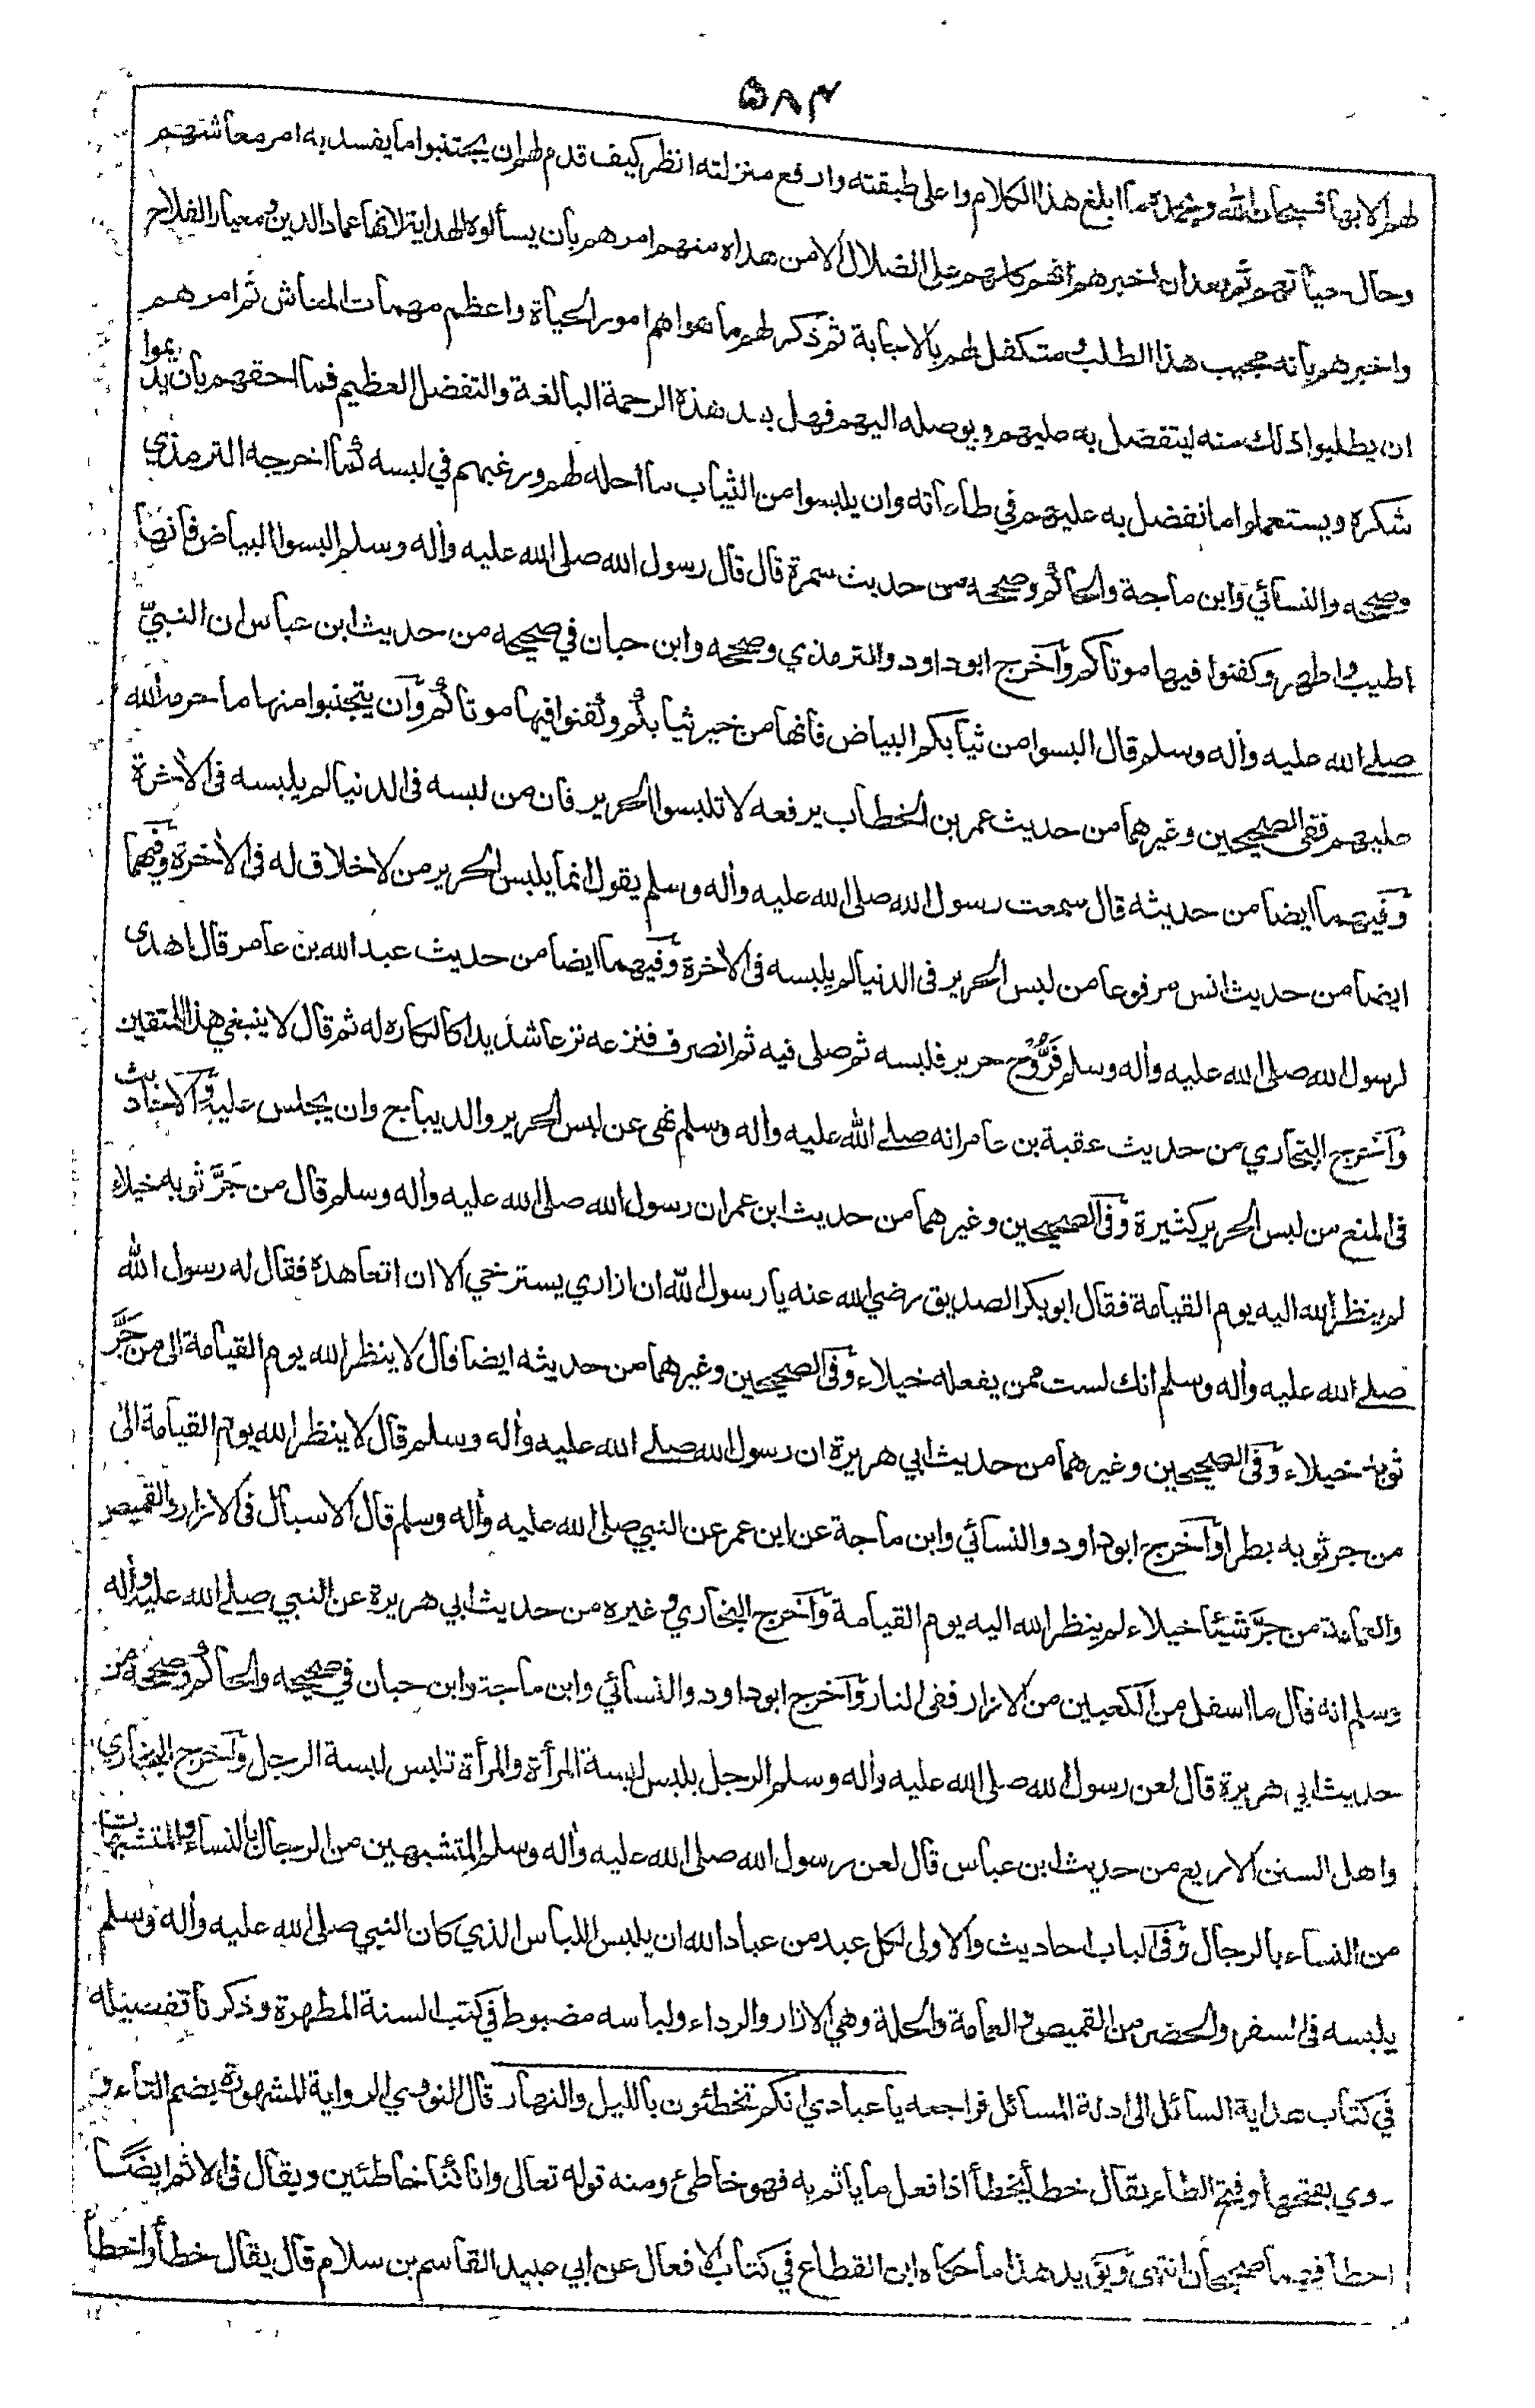 ۵۸۴
لهم الا بها فسبحان الله وبحمده ما ابلغ هذا الكلام واعلى طبقته وارفع منزلته انظر كيف قدم لهم ان يجتنبوا ما يفسد به امر معاشهم
وحال حياتهم ثم بعد ان اخبرهم انهم كلهم على الضلال الا من هداه منهم امرهم بأن يسألوه الهداية لانها عماد الدين ومعيار الفلاح
واخبرهم بأنه مجيب هذا الطلب ومتكفل لهم بالاجابة ثم ذكر لهم ما هو اهم امور الحياة واعظم مهمات المعاش ثم امرهم
ان يطلبوا ذلك منه ليتفضل به عليهم ويوصله اليهم فهل بعد هذه الرحمة البالغة والتفضل العظيم فما احقهم بأن يديموا
شكره ويستعملوا ما تفضل به عليهم في طاعاته وان يلبسوا من الثياب ما احله لهم ورغبهم في لبسه كما اخرجه الترمذي
وصححه والنسائي وابن ماجة والحاكم وصححه من حديث سمرة قال قال رسول الله صلى الله عليه وأله وسلم البسوا البياض فانها
اطيب واطهر وكفنوا فيها موتاكم وأخرج ابوداود والترمذي وصححه وابن حبان في صحيحه من حديث ابن عباس ان النبيّ
صلى الله عليه وأله وسلم قال البسوا من ثيابكم البياض فانها من خير ثيابكم وكفنوا فيها موتاكم وأن يتجنبوا منها ما حرمه الله
عليهم ففي الصحيحين وغيرهما من حديث عمر بن الخطاب يرفعه لا تلبسوا الحرير فان من لبسه فى الدنيا لم يلبسه فى الأخرة
وفيهما ايضا من حديثه قال سمعت رسول الله صلى الله عليه وأله وسلم يقول انما يلبس الحرير من لا خلاق له فى الأخرة وفيهما
ايضا من حديث انس مرفوعا من لبس الحرير فى الدنيا لم يلبسه فى الأخرة وفيهما ايضا من حديث عبد الله بن عامر قال اهدى
لرسول الله صلى الله عليه وأله وسلم فَرُّوْج حرير فلبسه ثم صلى فيه ثم انصرف فنزعه نزعا شديدا كالكاره له ثم قال لا ينبغي هذا للمتقين
وأخرج البخاري من حديث عقبة بن عامر انه صلى الله عليه وأله وسلم نهى عن لبس الحرير والديباج وان يجلس عليه والاحاديث
فى المنع من لبس الحرير كثيرة وفى الصحيحين وغيرهما من حديث ابن عمر ان رسول الله صلى الله عليه وأله وسلم قال من جَرَّ ثوبه خيلاء
لم ينظر الله اليه يوم القيامة فقال ابوبكر الصديق رضي الله عنه يا رسول الله ان ازاري يسترخي الا ان اتعاهده فقال له رسول الله
صلى الله عليه وأله وسلم انك لست ممن يفعله خيلاء وفى الصحيحين وغيرهما من حديثه ايضا قال لا ينظر الله يوم القيامة الى من جَرَّ
ثوبه خيلاء وفى الصحيحين وغيرهما من حديث ابي هريرة ان رسول الله صلى الله عليه وأله وسلم قال لا ينظر الله يوم القيامة الى
من جر ثوبه بطرا وأخرج ابوداود والنسائي وابن ماجة عن ابن عمر عن النبي صلى الله عليه وأله وسلم قال الاسبال فى الازار والقميص
والعمامة من جرَّ شيئا خيلاء لم ينظر الله اليه يوم القيامة وأخرج البخاري وغيره من حديث ابي هريرة عن النبي صلى الله عليه وأله
وسلم انه قال ما اسفل من الكعبين من الازار ففى النار وأخرج ابوداود والنسائي وابن ماجة وابن حبان في صحيحه والحاكم وصححه من
حديث ابي هريرة قال لعن رسول الله صلى الله عليه وأله وسلم الرجل يلبس لبسة المرأة والمرأة تلبس لبسة الرجل وأخرج البخاري
واهل السنن الاربع من حديث ابن عباس قال لعن رسول الله صلى الله عليه وأله وسلم المتشبهين من الرجال بالنساء والمتشبهات
من النساء بالرجال وفى الباب احاديث والاولى لكل عبد من عباد الله ان يلبس اللباس الذي كان النبي صلى الله عليه وأله وسلم
يلبسه فى السفر والحضر من القميص والعمامة والحلة وهي الازار والرداء ولباسه مضبوط في كتب السنة المطهرة وذكرنا تفصيله
في كتاب هداية السائل الى ادلة المسائل فراجعه يا عبادي انكم تخطئون بالليل والنهار قال النووي الرواية المشهورة بضم التاء و
روي بفتحها وفتح الطاء يقال خطأ يخطأ اذا فعل ما يأثم به فهو خاطئ ومنه قوله تعالى وانا كنا خاطئين ويقال فى الاثم ايضًا
اخطأ فهما صحيحان انتهى ويؤيد هذا ما حكاه ابن القطاع في كتاب الافعال عن ابي عبيد القاسم بن سلام قال يقال خطأ واخطأ